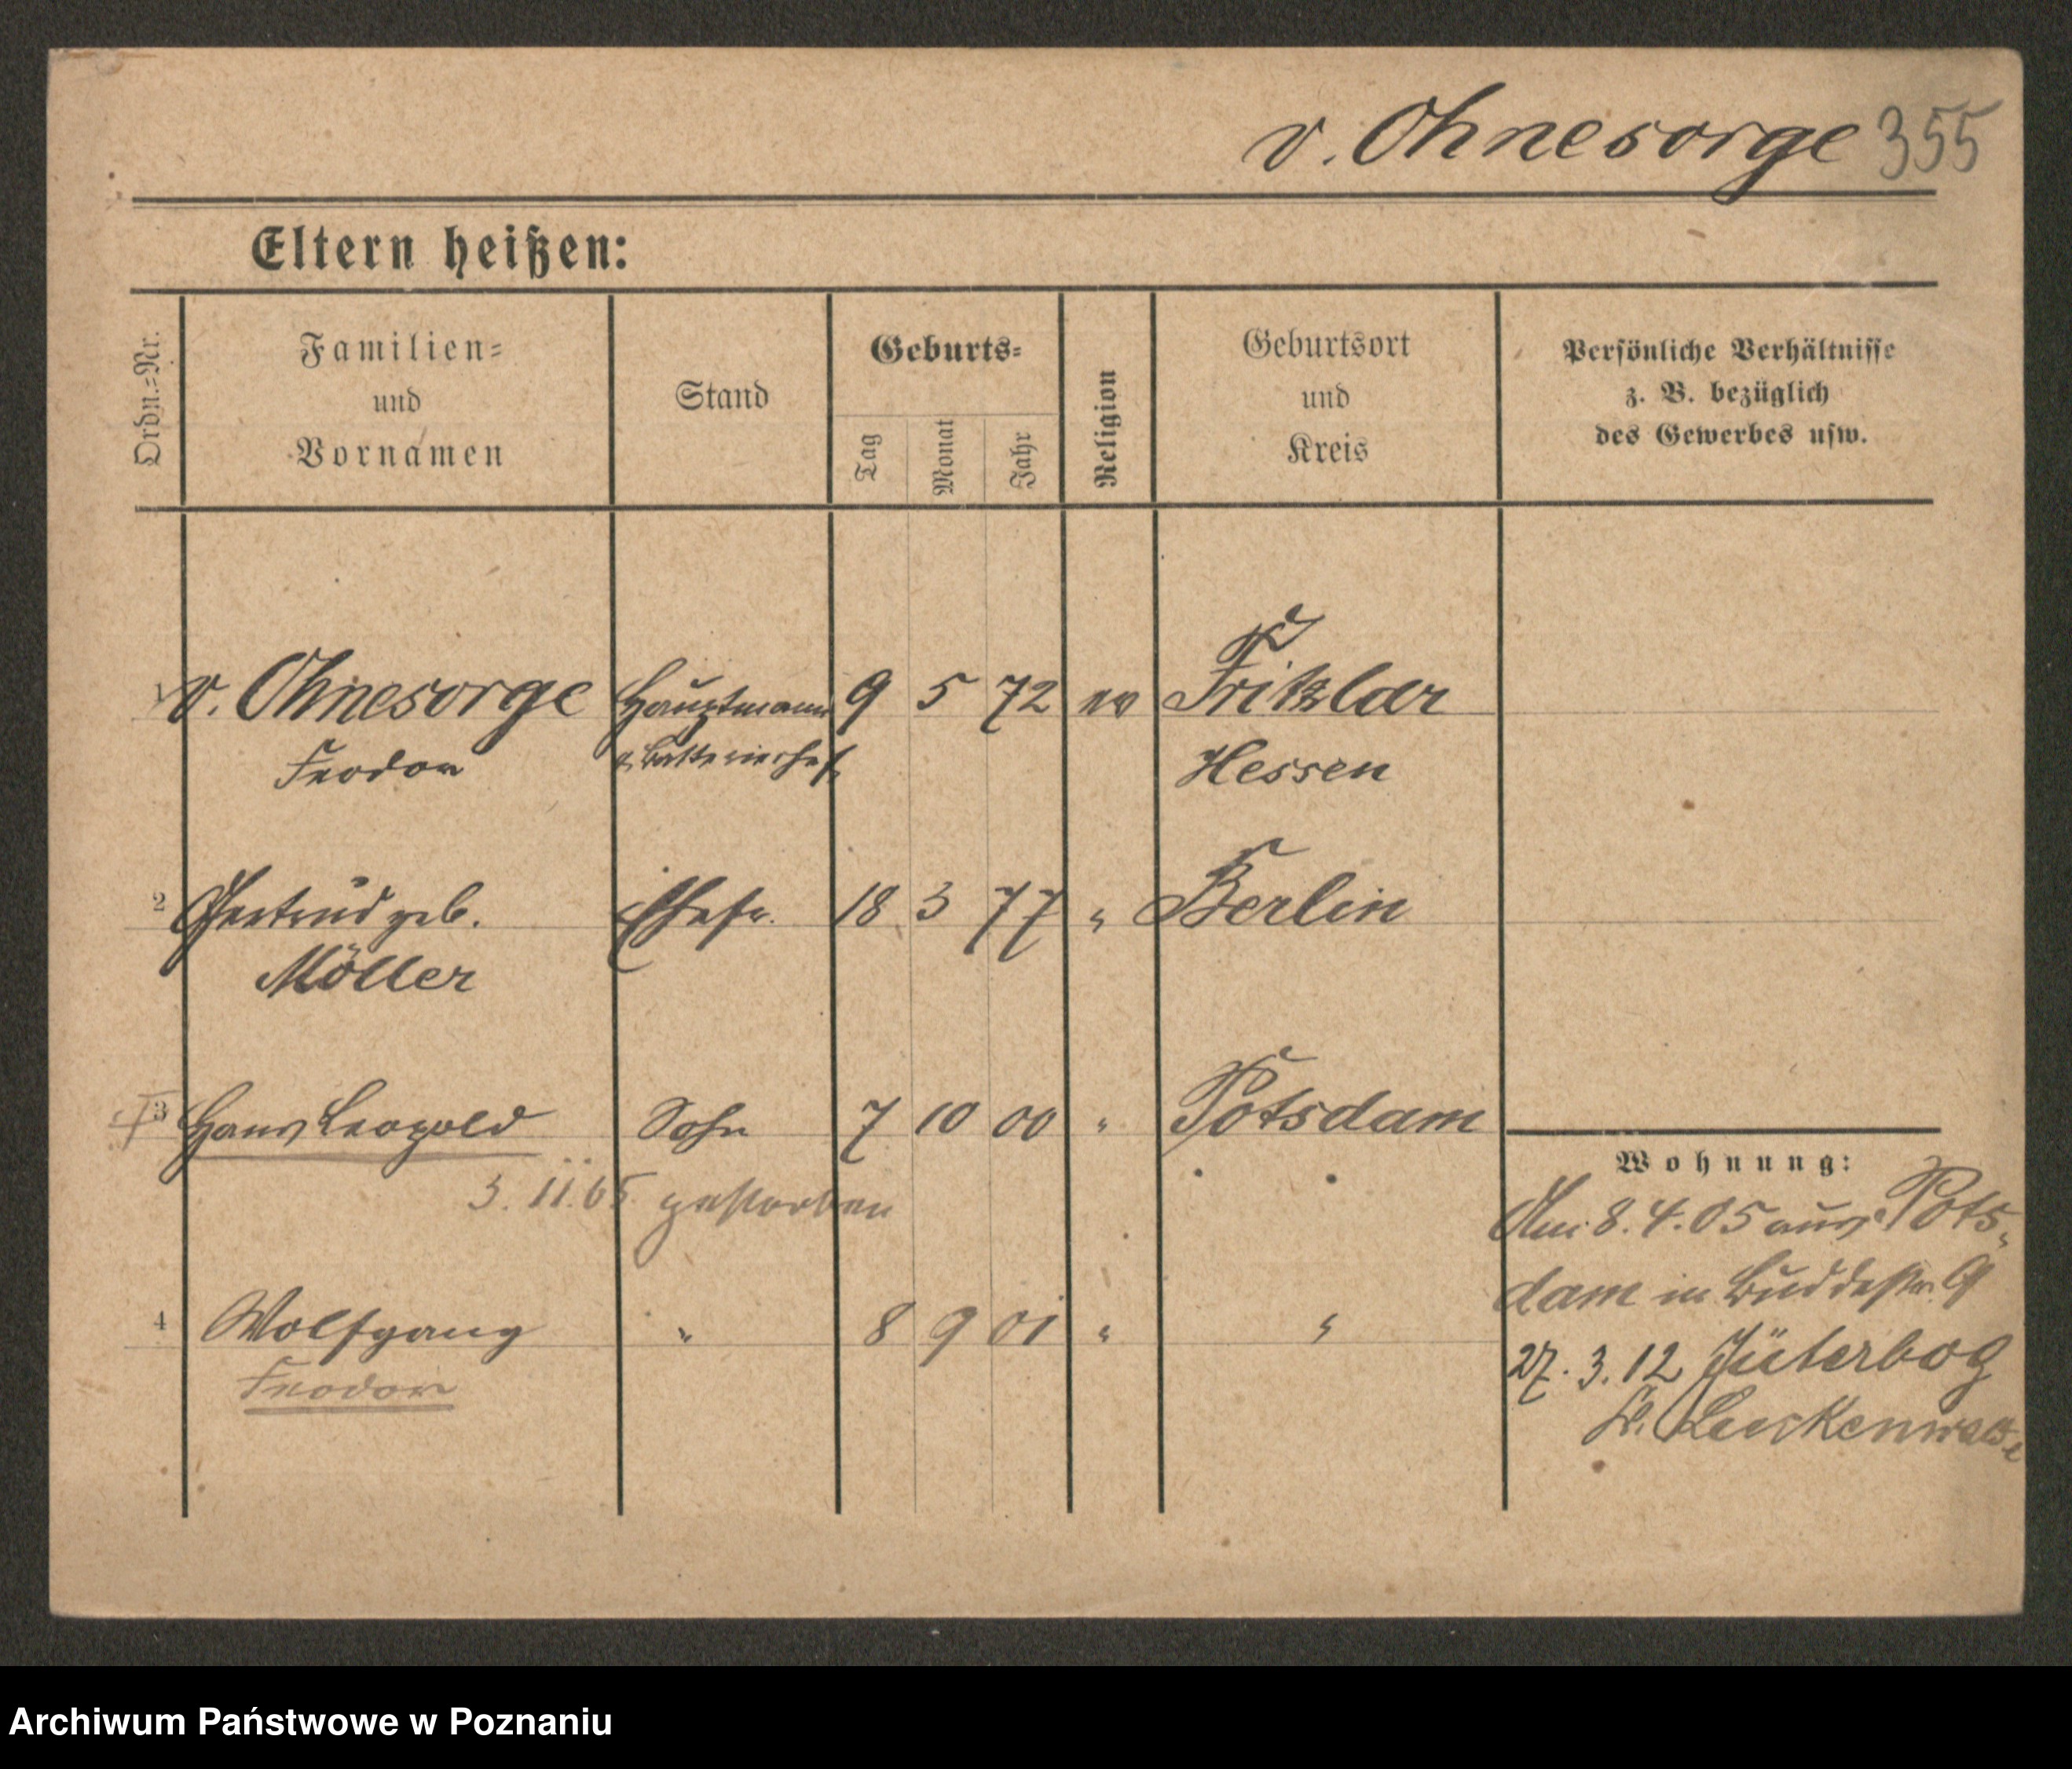 v. Ohnesorge 355
Eltern heißen:
Ordn.=Nr.
Familien=
und
Vornamen
Stand
Geburts=
Tag
Monat
Jahr
Religion
Geburtsort
und
Kreis
Persönliche Verhältnisse
z. B. bezüglich
des Gewerbes usw.
1 v. Ohnesorge Hauptmann 9 5 72 ev Fritzlar
Feodor Batteriechef Hessen
2 Gertrud geb. Ehefr. 18 3 77 " Berlin
Möller
3 Hans Leopold Sohn 7 10 00 " Potsdam
3. 11. 05 gestorben
4 Wolfgang " 8 9 01 " "
Feodor
Wohnung:
Am 8. 4. 05 aus Pots-
dam in Buddestr. 9
27. 3. 12 Jüterbog
Kr. Luckenwalde
Archiwum Państwowe w Poznaniu